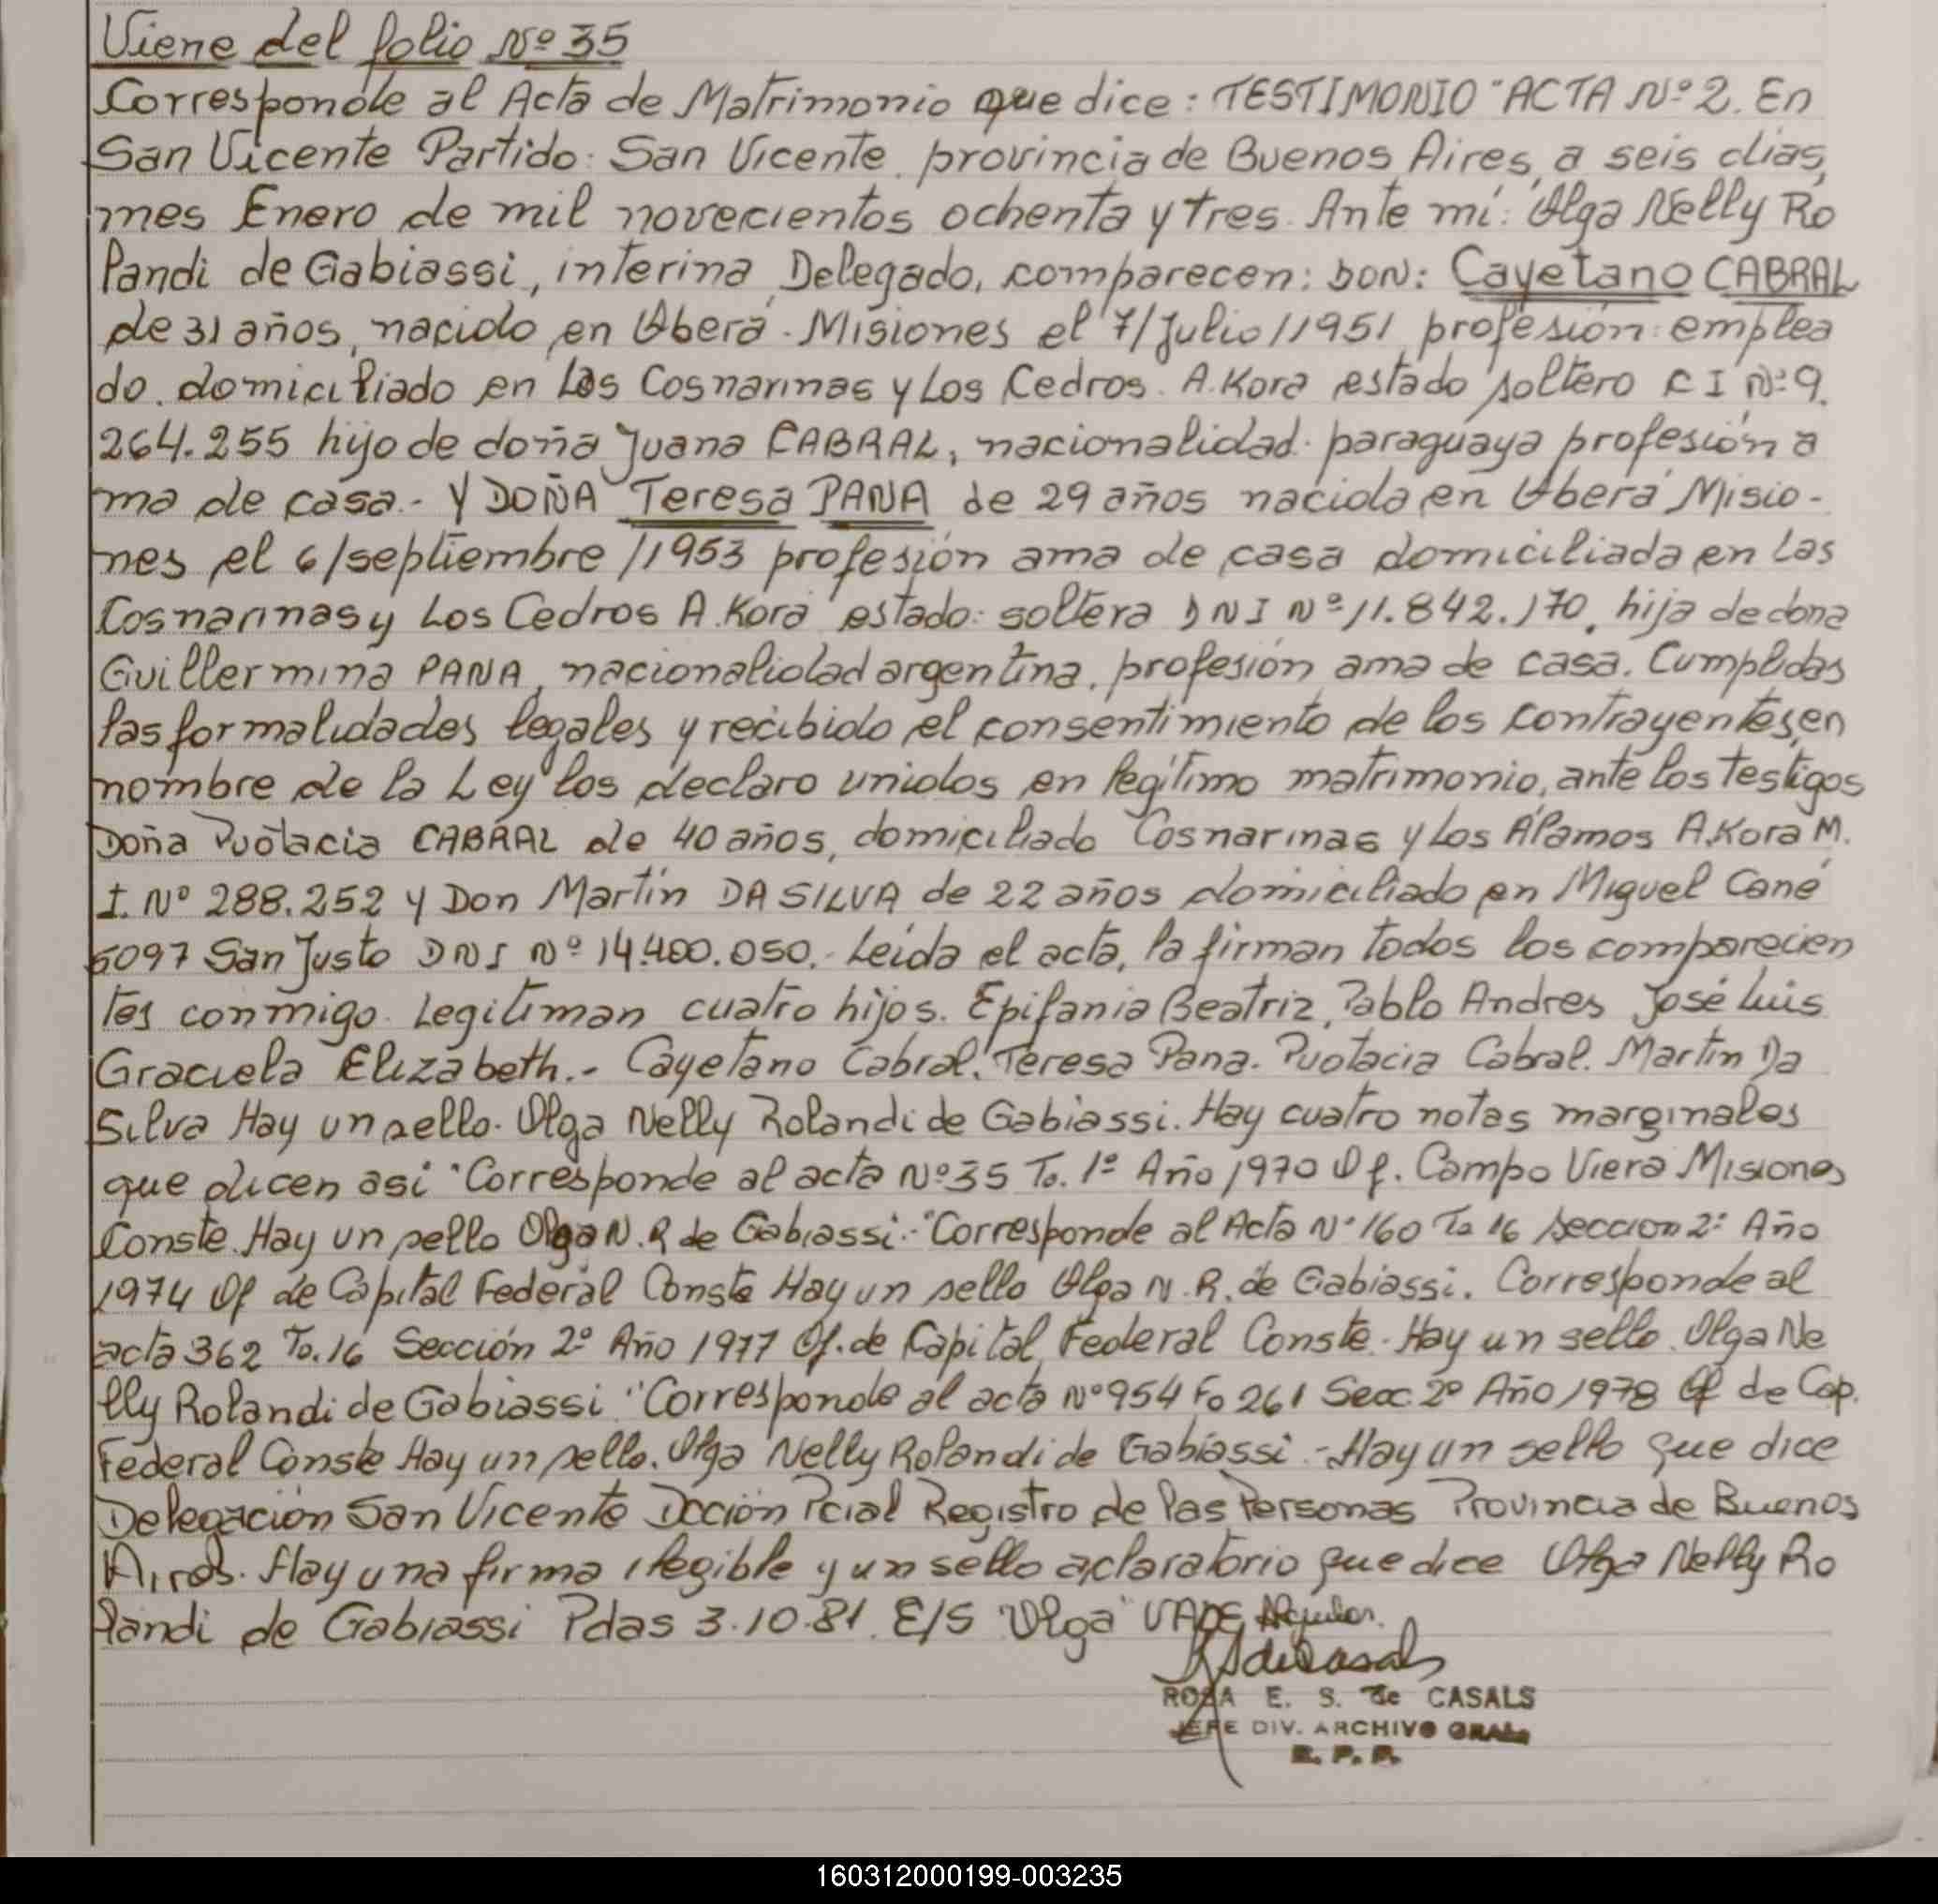 Viene del folio Nº 35
Corresponde al Acta de Matrimonio que dice: TESTIMONIO "ACTA Nº 2. En
San Vicente Partido: San Vicente, provincia de Buenos Aires, a seis dias,
mes Enero de mil novecientos ochenta y tres. Ante mi: Olga Nelly Ro
landi de Gabiassi, interina Delegado, comparecen: DON: Cayetano CABRAL
de 31 años, nacido en Oberá - Misiones el 7/Julio/1951 profesión: emplea
do. domiciliado en Las Cosnarinas y Los Cedros. A. Kora estado soltero C I Nº 9.
264.255 hijo de doña Juana CABRAL, nacionalidad paraguaya profesión a
ma de casa.- Y DOÑA Teresa PANA de 29 años nacida en Oberá Misio-
nes el 6/septiembre/1953 profesión ama de casa domiciliada en Las
Cosnarinas y Los Cedros A. Kora estado: soltera DNI Nº 11.842.170, hija de dona
Guillermina PANA, nacionalidad argentina, profesión ama de casa. Cumplidas
las formalidades legales y recibido el consentimiento de los contrayentes, en
nombre de la Ley los declaro unidos en legítimo matrimonio, ante los testigos
Doña Puotacia CABRAL de 40 años, domiciliado Cosnarinas y Los Álamos A. Kora M.
I. Nº 288.252 y Don Martín DA SILVA de 22 años domiciliado en Miguel Cané
5097 San Justo DNI Nº 14.400.050.- Leída el acta, la firman todos los comparecien
tes conmigo. Legitiman cuatro hijos. Epifania Beatriz, Pablo Andres José Luis
Graciela Elizabeth.- Cayetano Cabral. Teresa Pana. Puotacia Cabral. Martín Da
Silva Hay un sello. Olga Nelly Rolandi de Gabiassi. Hay cuatro notas marginales
que dicen asi "Corresponde al acta Nº 35 To. 1º Año 1970 Of. Campo Viera Misiones
Conste. Hay un sello Olga N. R de Gabiassi.- "Corresponde al Acta Nº 160 To 16 Seccion 2ª Año
1974 Of de Capital Federal Conste Hay un sello Olga N. R. de Gabiassi. Corresponde al
acta 362 To. 16 Sección 2º Año 1977 Of. de Capital Federal Conste. Hay un sello. Olga Ne
lly Rolandi de Gabiassi. "Corresponde al acta Nº 954 Fo 261 Secc. 2º Año 1978 Of de Cap.
Federal Conste Hay un sello. Olga Nelly Rolandi de Gabiassi.- Hay un sello que dice
Delegación San Vicente Dcción Pcial Registro de las Personas Provincia de Buenos
Aires. Hay una firma ilegible y un sello aclaratorio que dice Olga Nelly Ro
landi de Gabiassi Pdas 3.10.81. E/S "Olga" VALE
ROSA E. S. de CASALS
JEFE DIV. ARCHIVO GRAL.
R. P. P.
160312000199-003235